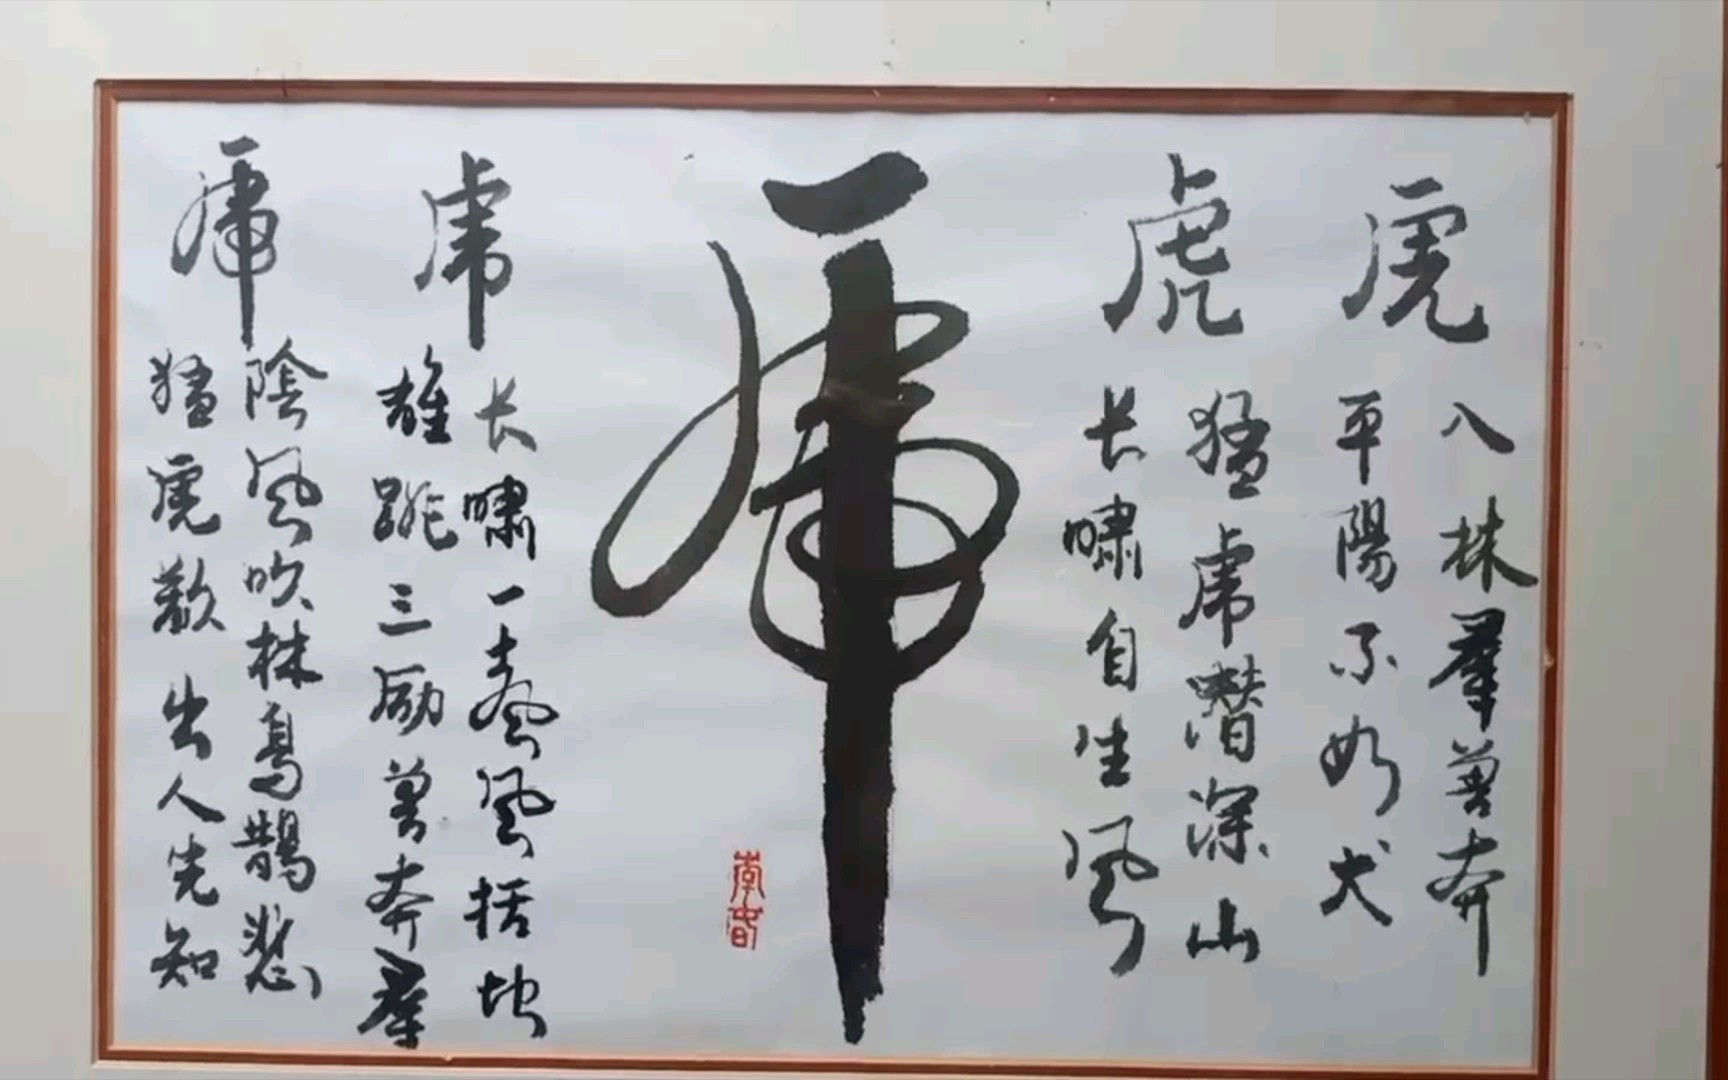 虎
入林群兽奔
平陽不如犬
虎
猛虎潜深山
长啸自生风
虎
虎
长啸一声风括地
雄跳三励兽奔群
虎
陰风吹林烏鵲悲
猛虎欲出人先知